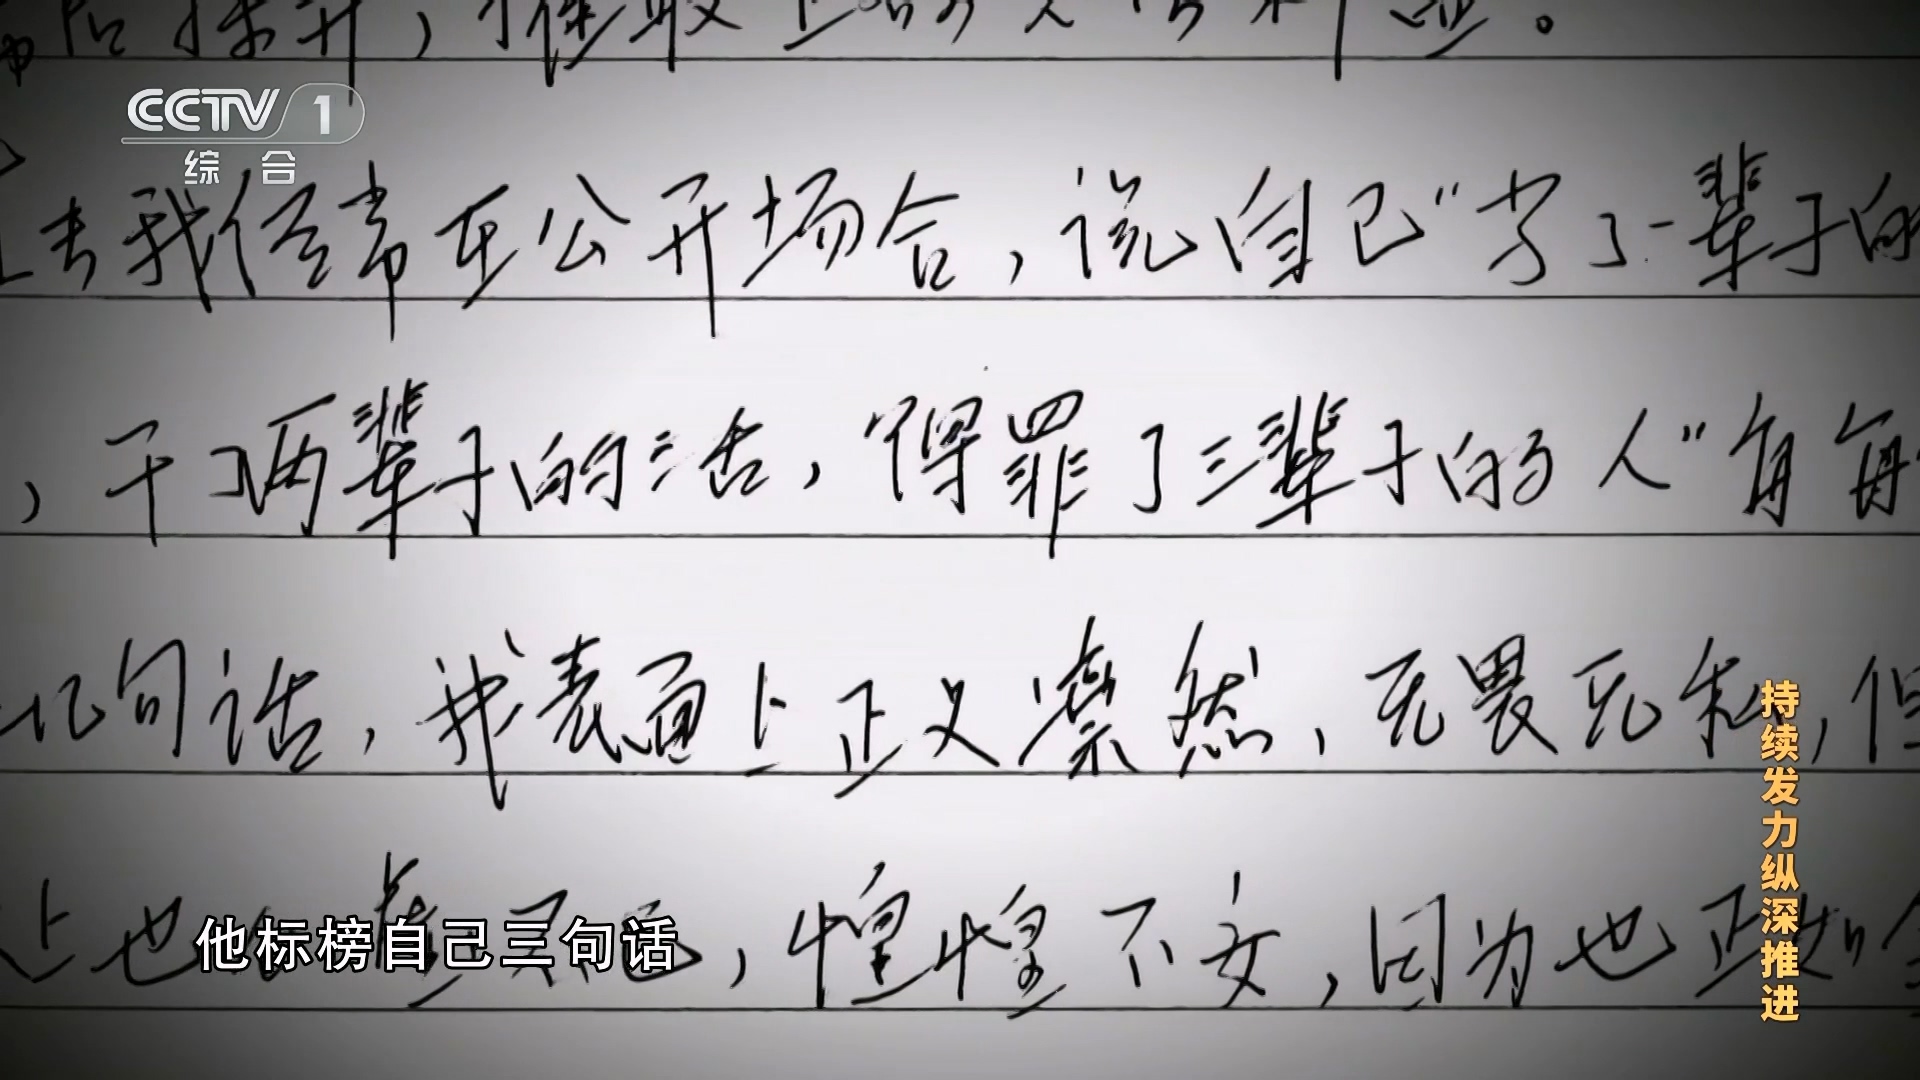 CCTV 1
综合
过去我经常在公开场合，说自己“当了一辈子的
，干了两辈子的活，得罪了三辈子的人”每每
句话，我表面上正义凛然、无畏无私，但
上也心 ，惶惶不安，因为也正如
他标榜自己三句话
持续发力纵深推进